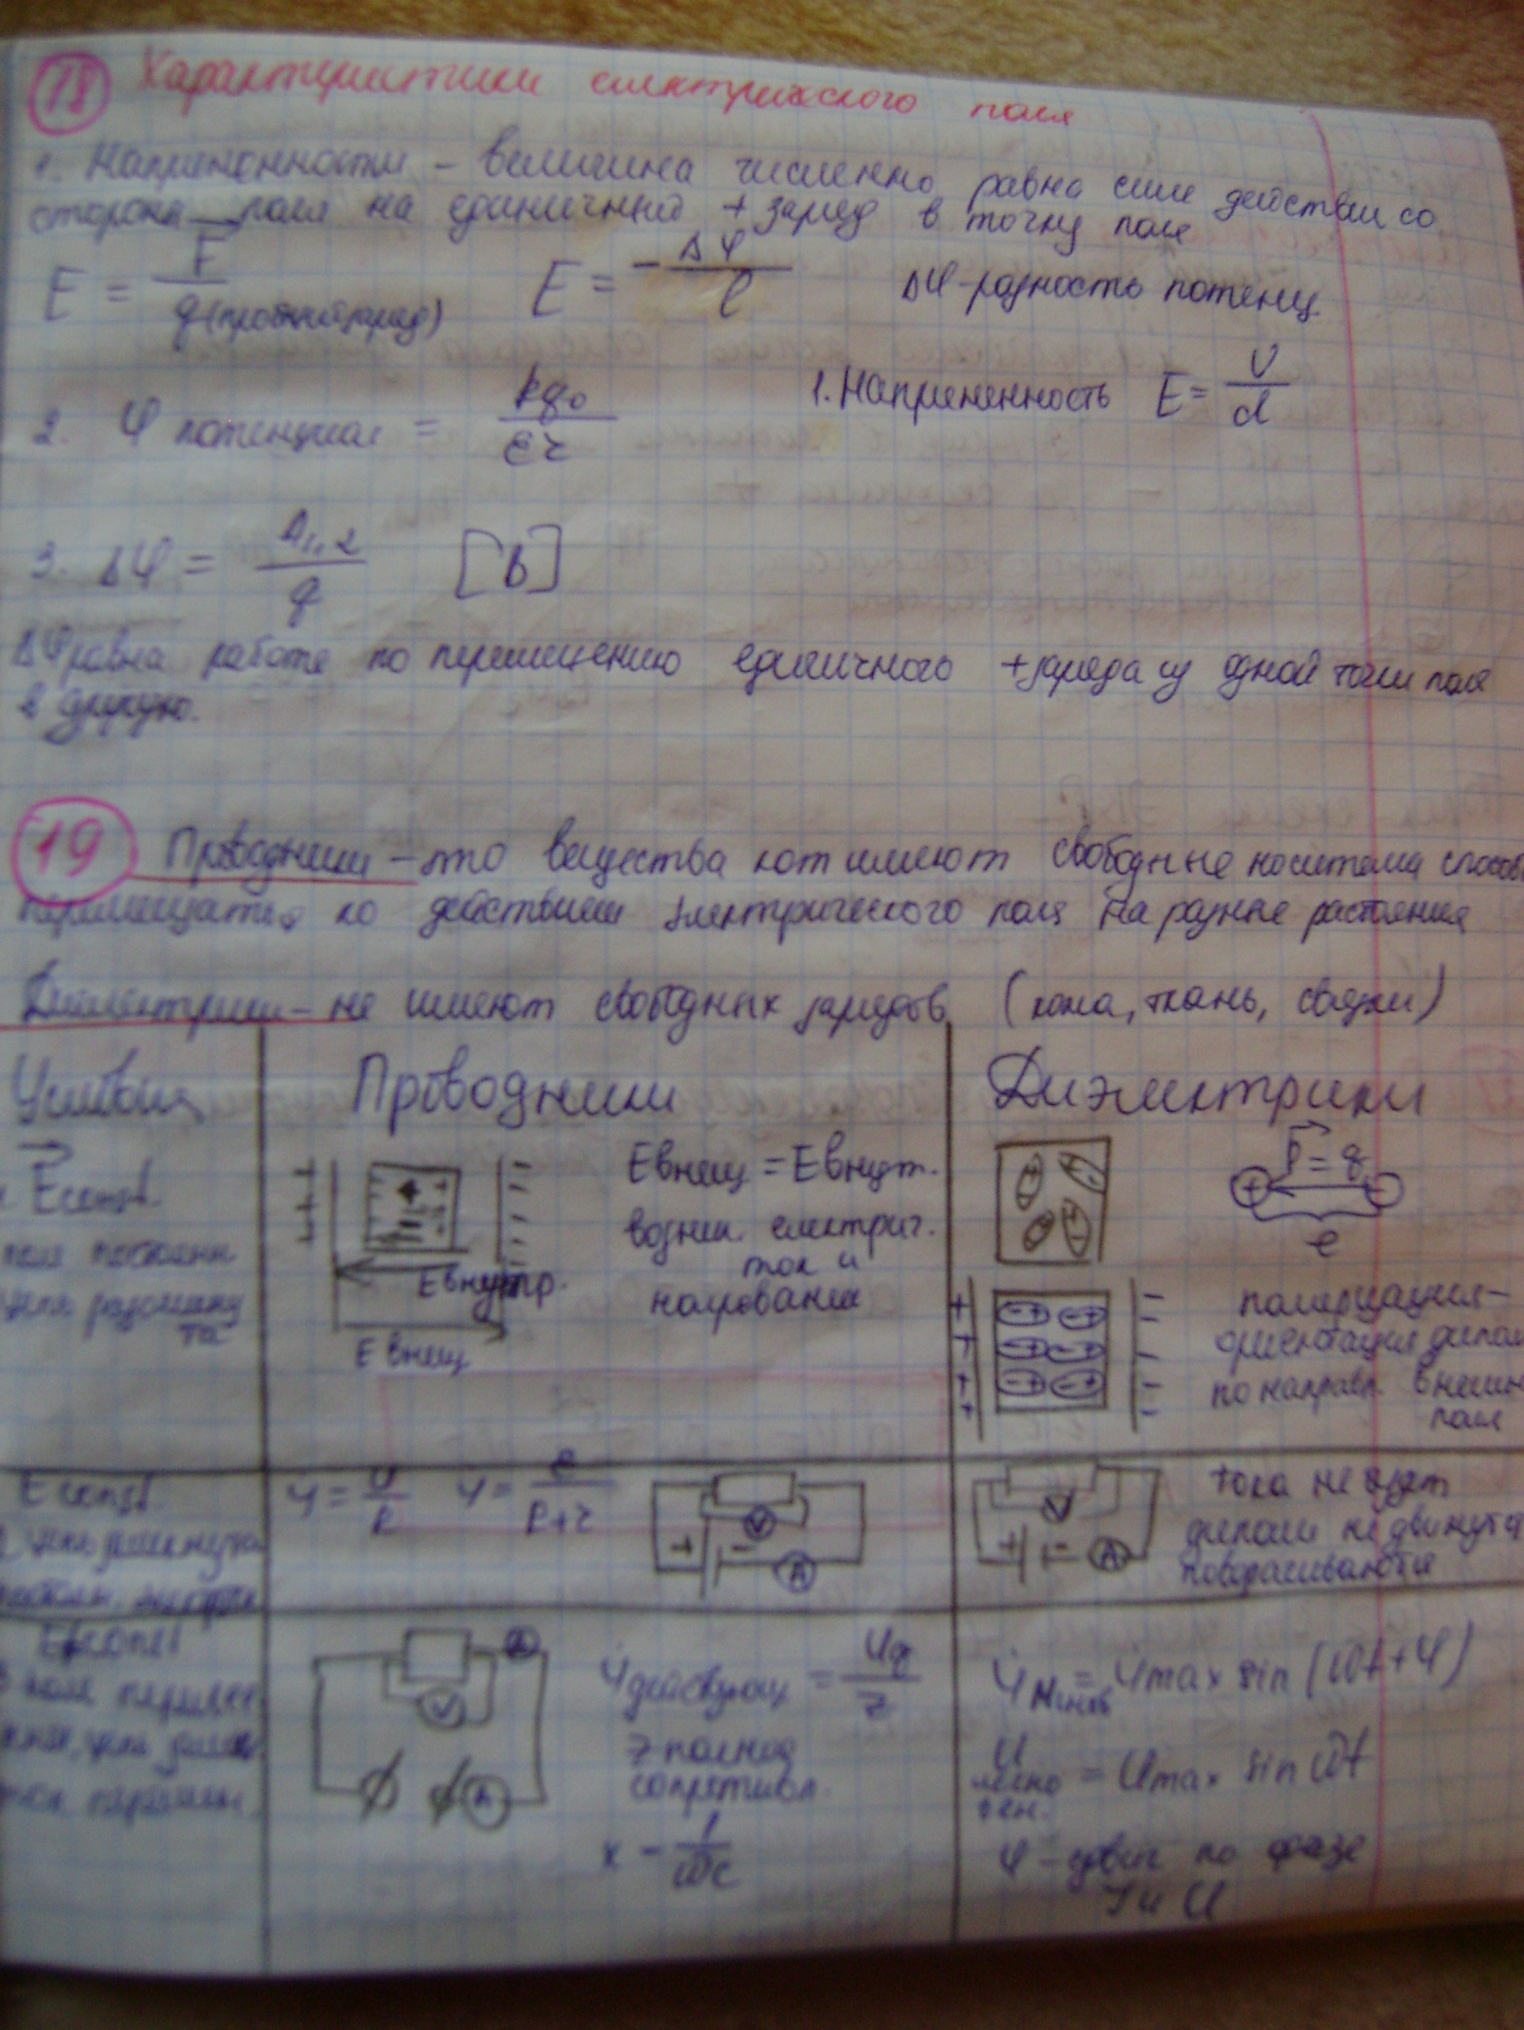 18 Характеристики електрического поля
1. Напряженности – величина численно равна силе действии со
стороны поля на единичный + заряд в точку поля
E = F / q (пробный заряд) E = - Δφ / l Δφ - разность потенц
2. φ потенциал = kq₀ / εr 1. Напряженность E = U / d
3. Δφ = A₁,₂ / q [В]
Δφ равна работе по перемещению единичного + заряда из одной точки поля
в другую.
19 Проводники – это вещества кот имеют свободные носители способ
перемещаться по действием электрического поля на разные растояния
Диэлектрики – не имеют свободных зарядов (кожа, ткань, связки)
Условия Проводники Диэлектрики
E const.
поле постоянн
цепь разомкну
та
+ + + - - - - -
Eвнеш = Eвнут.
возник. електрич.
ток и
нагревание
E внутр.
E внеш
p = q
+ -
l
+ + + + - + - + - + - + - + - + - - - -
поляризация –
ориентация дипол
по направл. внешн
поля
E const.
цепь замкнута
I = U / R I = ε / R+r
V + - A
V + - A
тока не будет
диполи не двинутся
поворачиваются
E≠const
поле перемен
цепь замк
ток перемен.
V A
I действующ = Uд / z
z полное
сопротивл.
x - 1 / ωc
I мгнов = Imax sin (ωt + φ)
U
мгно = Umax sin ωt
вен.
φ – сдвиг по фазе
I и U